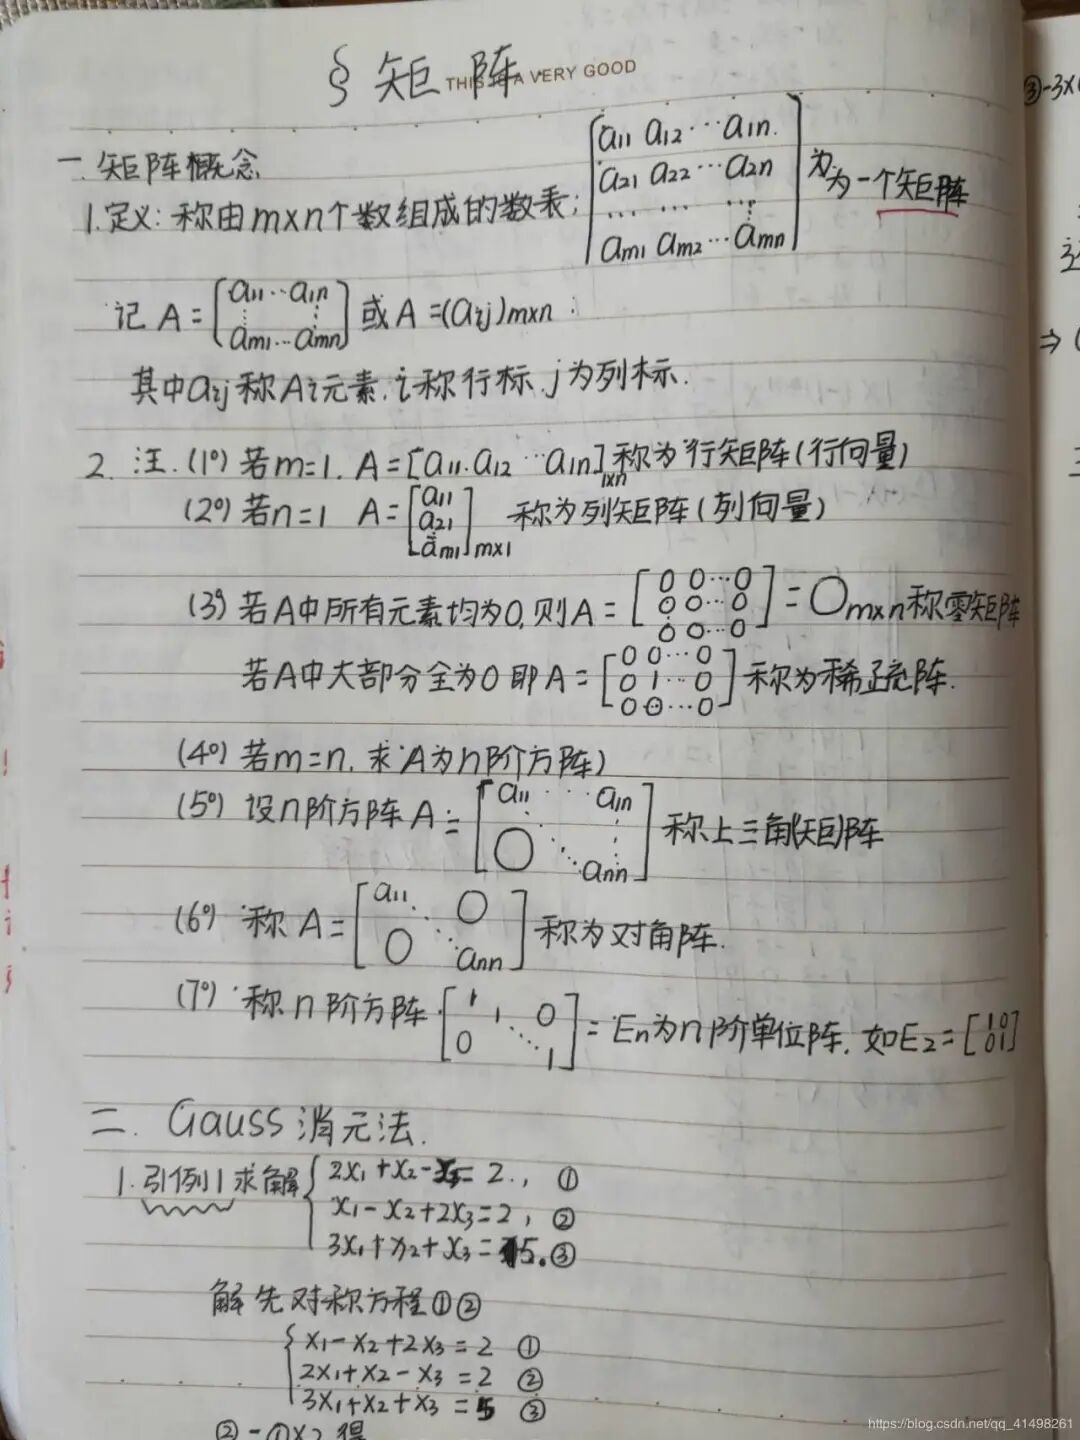 § 矩阵
THIS IS A VERY GOOD
一. 矩阵概念
1. 定义: 称由m×n个数组成的数表; [a11 a12 ⋯ a1n. a21 a22 ⋯ a2n ⋯ ⋯ ⋯ am1 am2 ⋯ amn] 为为一个矩阵
记 A = [a11 ⋯ a1n ⋮ ⋮ am1 ⋯ amn] 或 A =(aij)m×n
其中aij称A i元素. i称行标. j为列标.
2. 注. (1°) 若m=1. A = [a11. a12 ⋯ a1n]1×n 称为行矩阵(行向量)
(2°) 若n=1 A = [a11 a21 ⋮ am1]m×1 称为列矩阵(列向量)
(3°) 若A中所有元素均为0, 则A = [0 0⋯0 0 0⋯0 0 0⋯0] = Om×n 称零矩阵
若A中大部分全为0 即A = [0 0⋯0 0 1⋯0 0 0⋯0] 称为稀疏阵.
(4°) 若m=n, 求A为n阶方阵)
(5°) 设n阶方阵A = [a11 ⋯ a1n O ⋱ ⋮ ann] 称上三角(矩)阵
(6°) 称A = [a11 O ⋱ O ann] 称为对角阵.
(7°) 称n阶方阵 [1 1 0 0 ⋱ 1] = En为n阶单位阵. 如E2 = [1 0 0 1]
二. Gauss 消元法.
1. 引例1 求解 { 2x1+x2-x3=2., ①
x1-x2+2x3=2, ②
3x1+x2+x3=5. ③
解 先对称方程①②
{ x1-x2+2x3=2 ①
2x1+x2-x3=2 ②
3x1+x2+x3=5 ③
②-①×2 得
③-3×
⇒ (
https://blog.csdn.net/qq_41498261